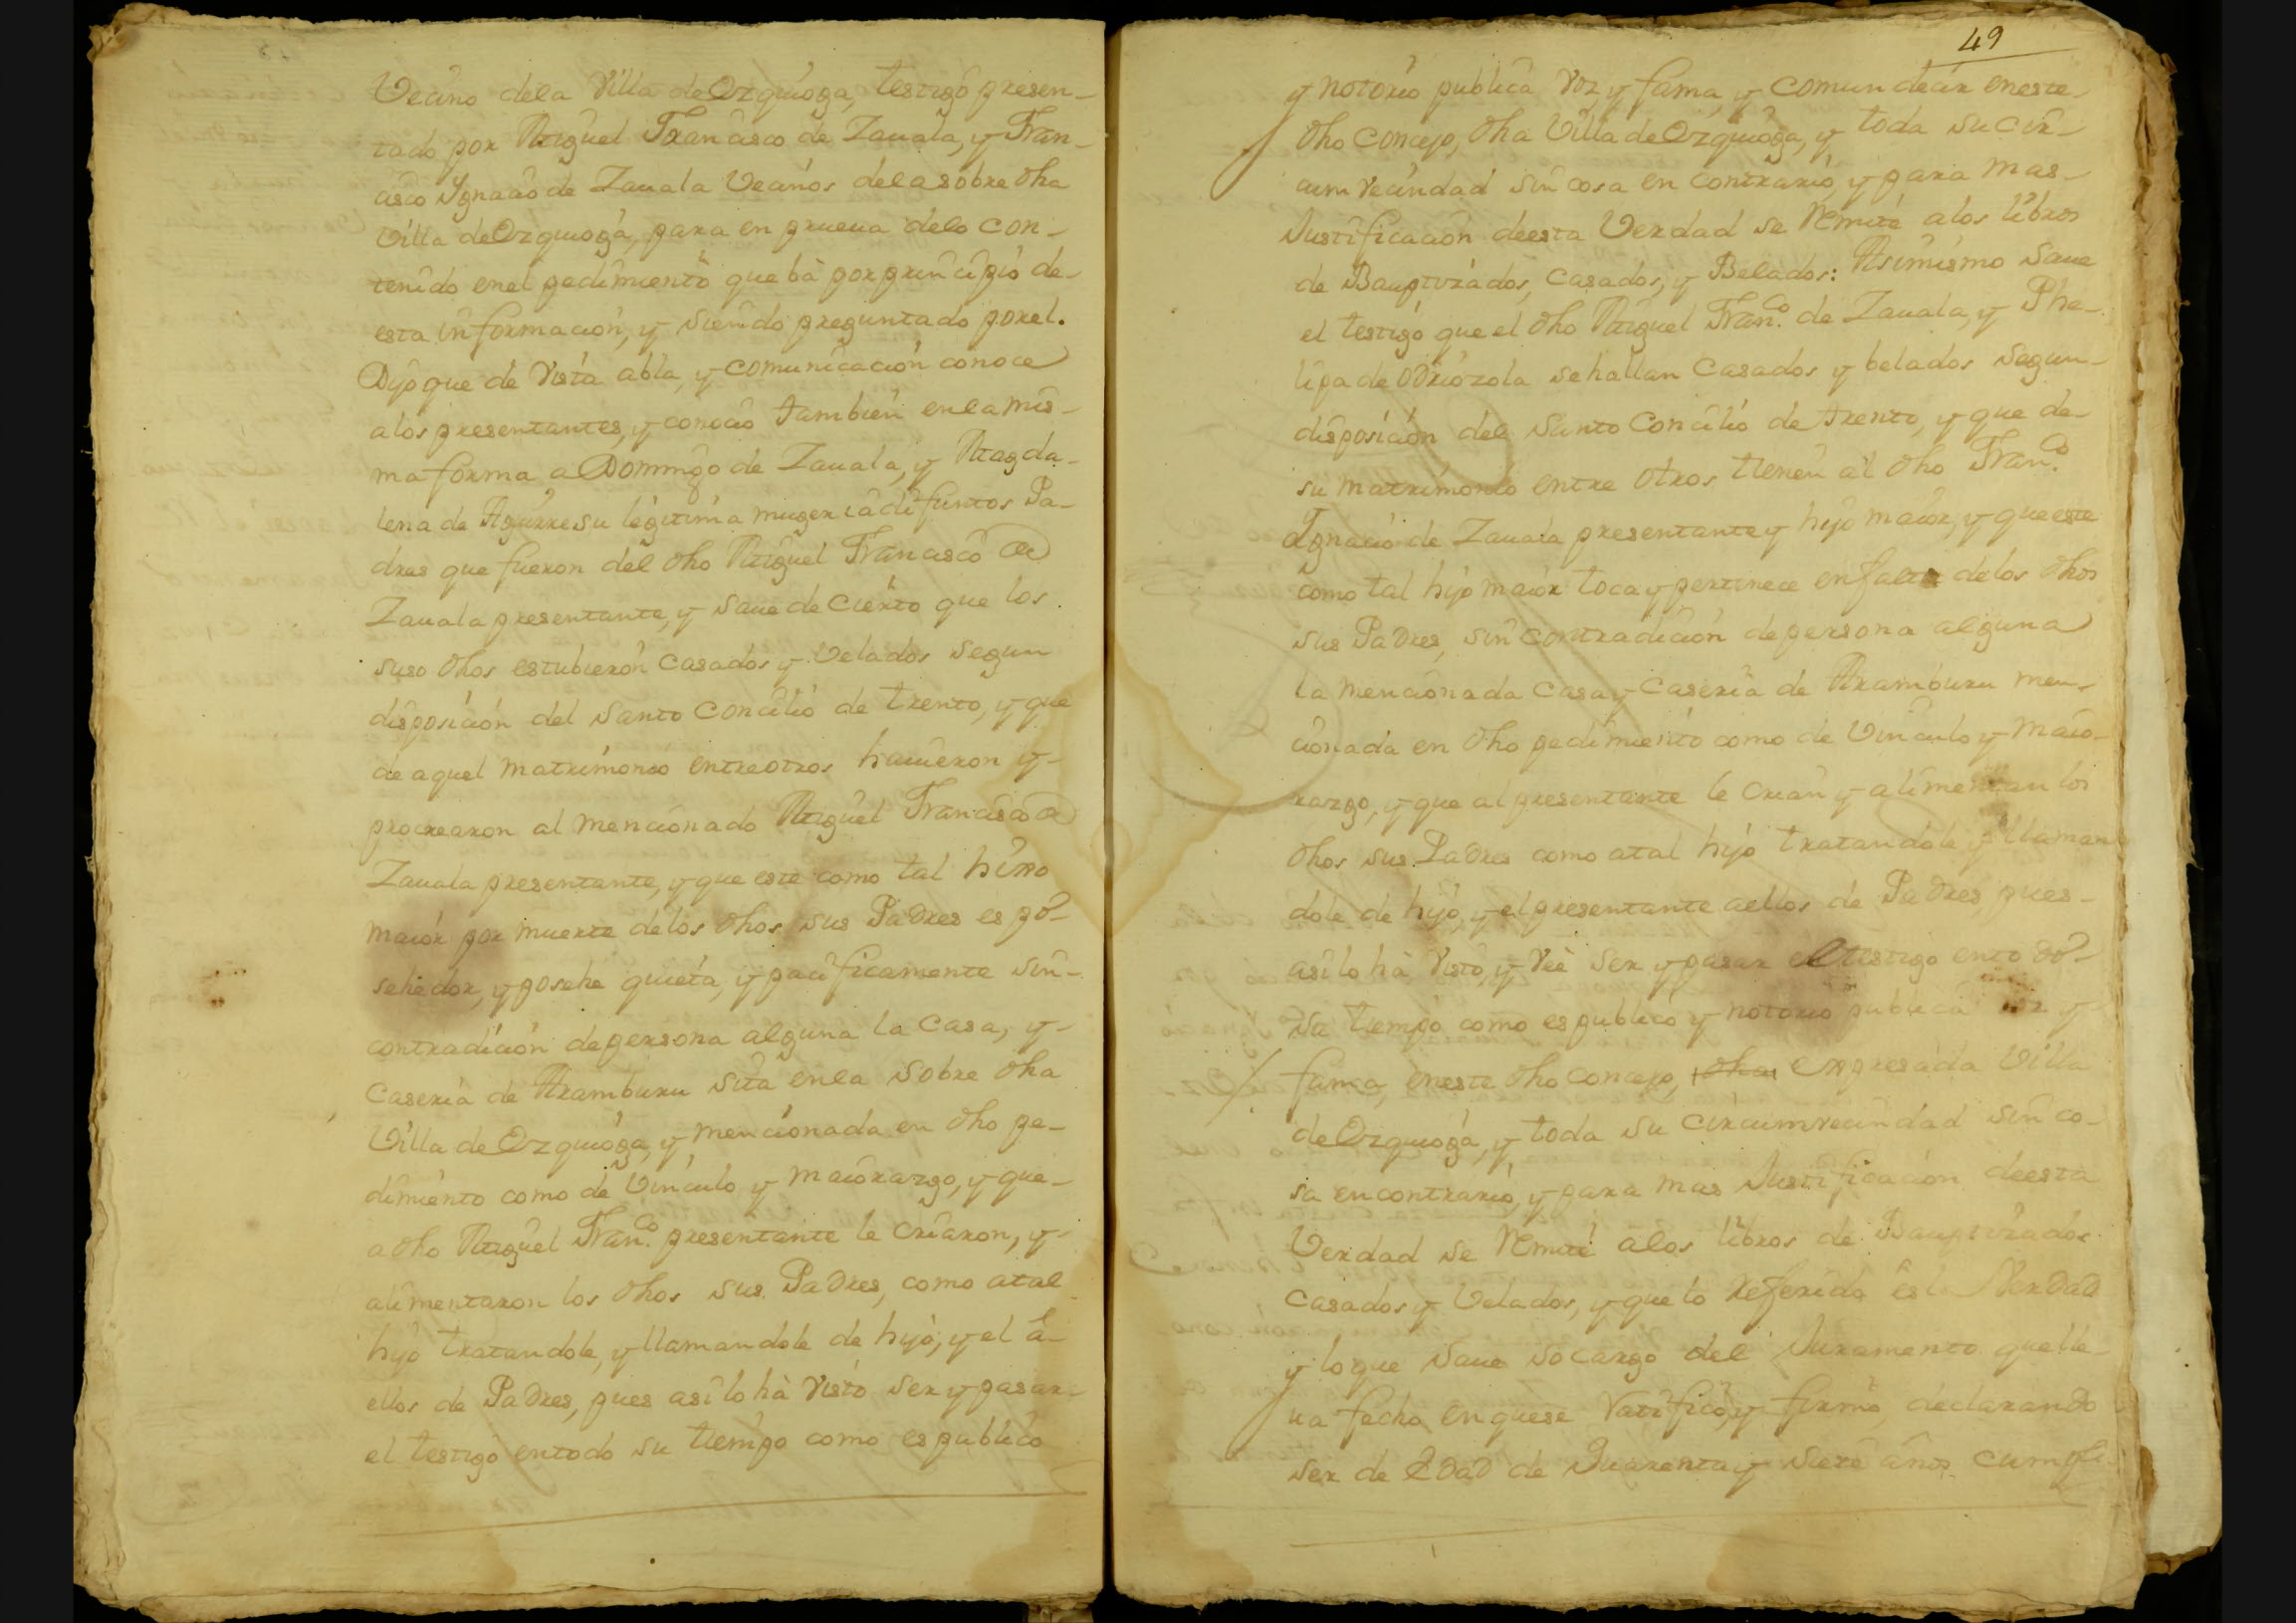 Vecino dela Villa de Ozquioga, testigo presen-
tado por Miguel Francisco de Zauala, y Fran-
cisco Ygnacio de Zauala Vecinos dela sobre dha
Villa de Ozquioga, para en prueua delo con-
tenido enel pedimiento que bà por principio de-
esta informacion, y siendo preguntado porel.
Dijo que de vista abla, y comunicacion conoce
alos presentantes, y conocio tambien enla mis-
ma forma a Domingo de Zauala, y Magda-
lena de Aguirre su legitima muger ia difuntos Pa-
dres que fueron del dho Miguel Francisco de
Zauala presentante, y saue de cierto que los
suso dhos estubieron casados y Velados segun
disposicion del santo concilio de trento, y que
de aquel matrimonio entre otros hauieron y-
procrearon al mencionado Miguel Francisco de
Zauala presentante, y que este como tal hixo
maior por muerte delos dhos sus Padres es po-
sehedor, y posehe quieta, y pacificamente sin-
contradicion depersona alguna la casa, y-
caseria de Aramburu sita enla sobre dha
Villa de Ozquioga, y mencionada en dho pe-
dimiento como de Vinculo y maiorazgo, y que-
a dho Miguel Fran.co presentante le criaron, y-
alimentaron los dhos sus Padres, como atal
hijo tratandole, y llamandole de hijo, y el à-
ellos de Padres, pues asilo hà visto ser y pasar-
el testigo entodo su tiempo como es publico
49
y notorio publica voz, y fama, y comun decir eneste
dho concejo, dha Villa de Ozquioga, y toda su cir-
cum vecindad sin cosa en contrario, y para mas-
Justificacion deesta Verdad se Remite alos libros
de Bauptizados, casados, y Belados: Asimismo saue
el testigo que el dho Miguel Fran.co de Zauala, y Phe-
lipa de Odriozola se hallan casados y belados segun-
disposicion del santo Concilio de trento, y que de-
su matrimonio entre otros tienen al dho Fran.co
Ygnacio de Zauala presentante y hijo maior, y que este
como tal hijo maior toca y pertenece en falta delos dhos
sus Padres, sin contradicion depersona alguna
la mencionada casa y caseria de Aramburu men-
cionada en dho pedimiento como de Vinculo y maio-
razgo, y que al presentante le crian y alimentan los
dhos sus Padres como atal hijo tratandole y llaman
dole de hijo, y el presentante aellos de Padres, pues-
asilo hà visto, y veè ser y pasar el testigo ento do-
su tiempo como es publico y notorio publica voz y
fama, eneste dho concejo, dha expresada Villa
de Ozquioga, y toda su circumvecindad sin co-
sa en contrario, y para mas Justificacion deesta
Verdad se Remite alos libros de Bauptizados
casados y Velados, y que lo referido es la Verdad
y loque saue socargo del Juramento quelle-
ua fecho enquese ratificò, y firmò, declarando
ser de Edad de Quarenta y siete años cumpli